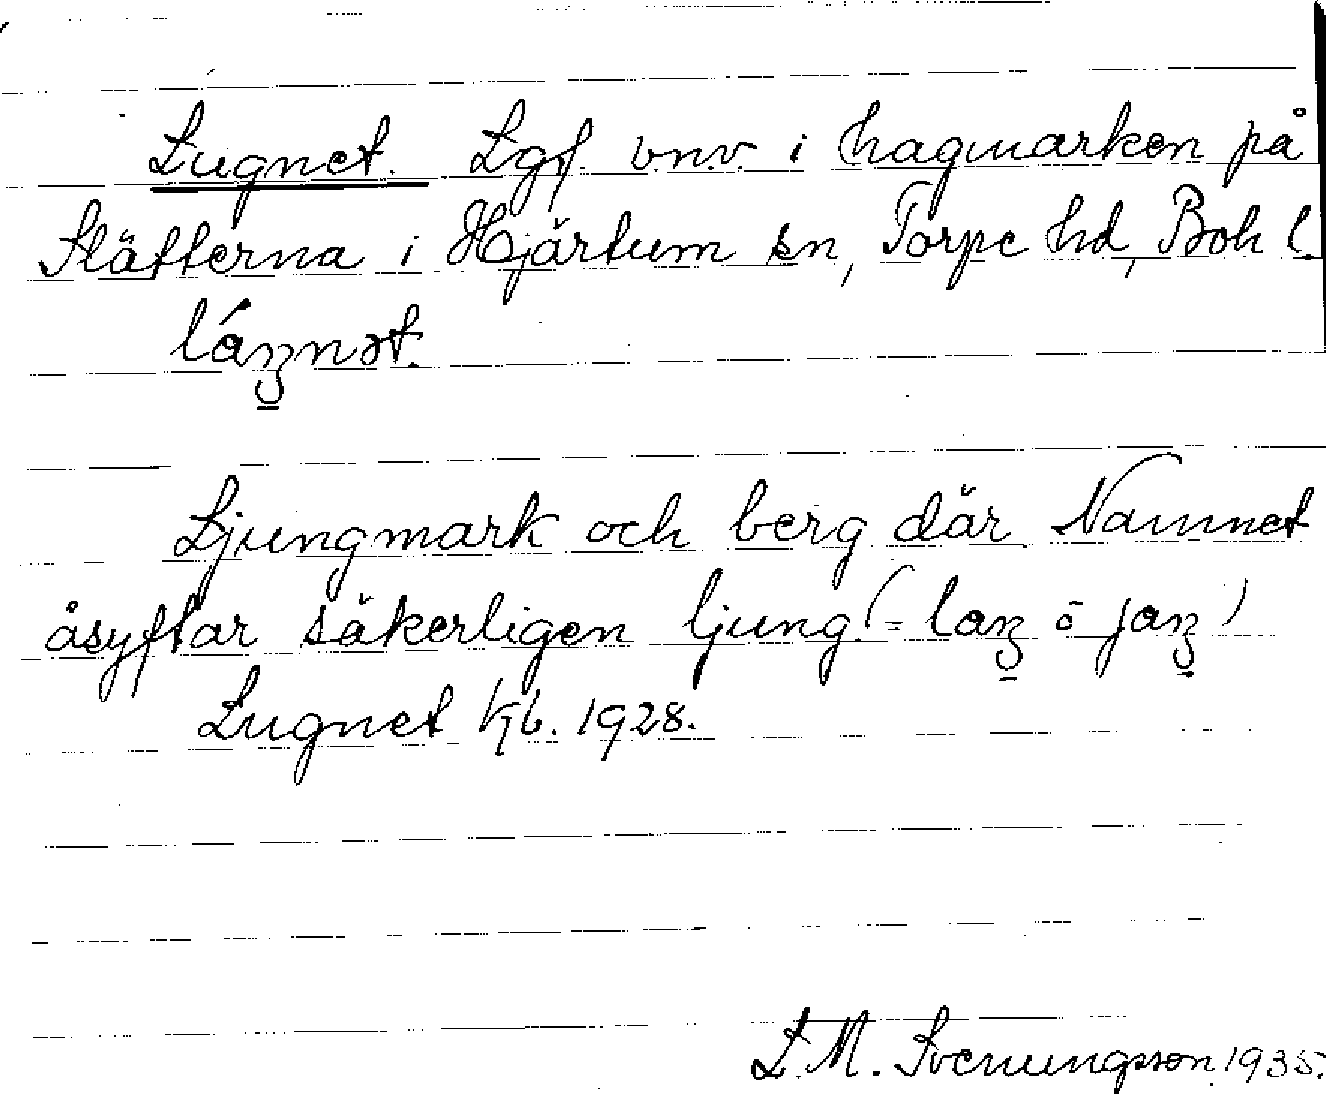 Lugnet. Lgf. v.n.v. i hagmarken på
Släfterna i Hjärtum sn, Torpe hd, Boh l.
låʒnət.
Ljungmark och berg där Namnet
åsyftar säkerligen ljung. (= laʒ o jaʒ)
Lugnet Kb. 1928.
L. M. Svenungsson 1935.